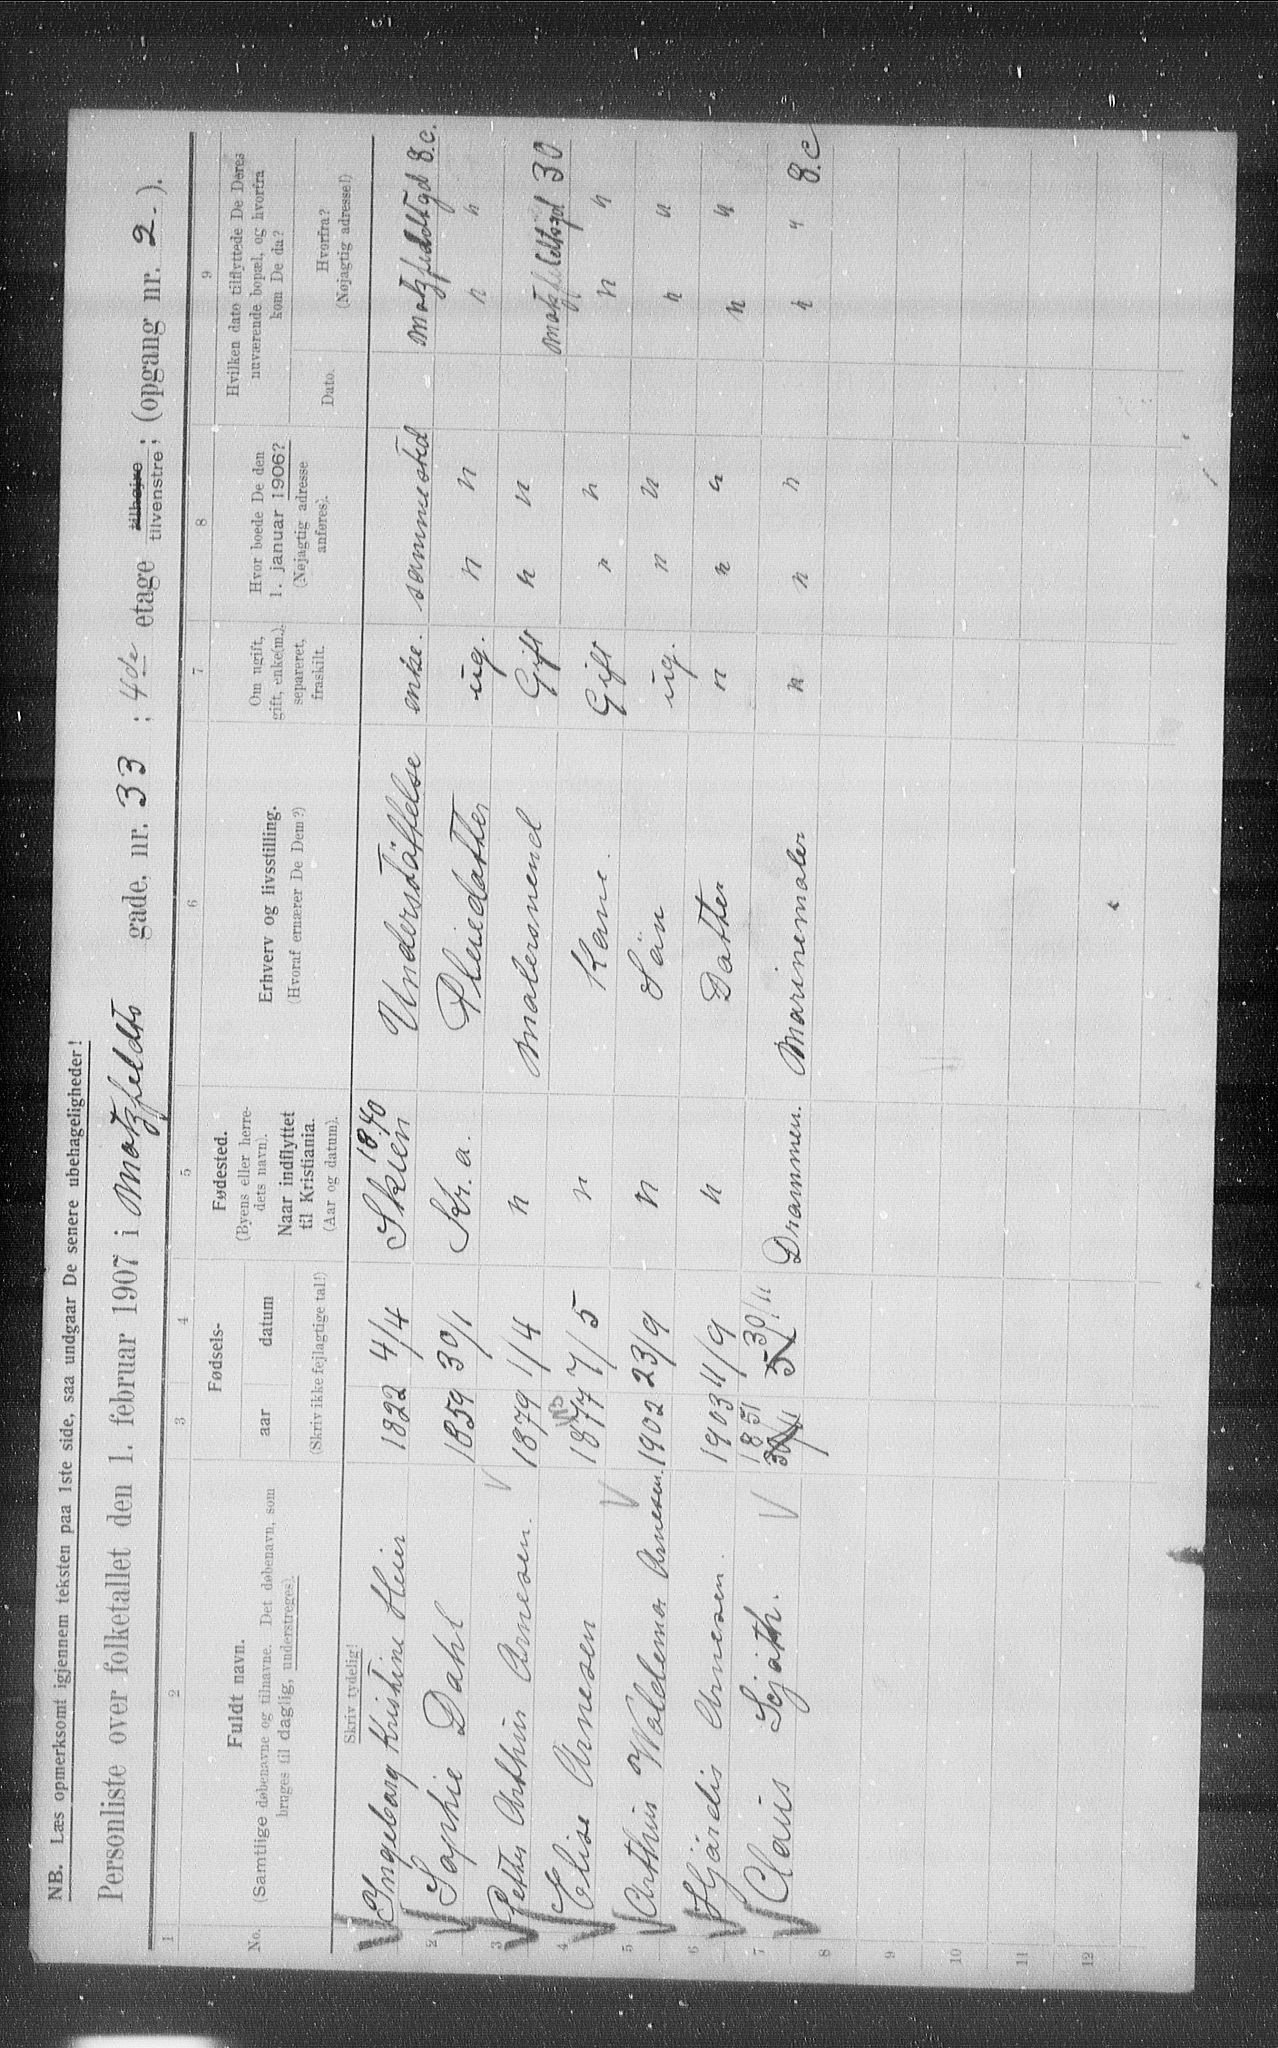 NB. Læs opmerksomt igjennem teksten paa 1ste side, saa undgaar De senere ubehageligheder!
Personliste over folketallet den 1. februar 1907 i Motzfeldts gade, nr. 33 ; 4de etage tilhøjre tilvenstre; (opgang nr. 2.).
1 2 3 4 5 6 7 8 9
No.
Fuldt navn.
(Samtlige døbenavne og tilnavne. Det døbenavn, som
bruges til daglig, understreges).
Fødsels-
aar datum
(Skriv ikke fejlagtige tal!)
Fødested.
(Byens eller herre-
dets navn).
Naar indflyttet
til Kristiania.
(Aar og datum).
Erhverv og livsstilling.
(Hvoraf ernærer De Dem?)
Om ugift,
gift, enke(m.),
separeret,
fraskilt.
Hvor boede De den
1. januar 1906?
(Nøjagtig adresse
anføres).
Hvilken dato tilflyttede De Deres
nuværende bopæl, og hvorfra
kom De da?
Dato.
Hvorfra?
(Nøjagtig adresse!)
Skriv tydelig!
Ingeborg Kristine Heier 1822 4/4 Skien 18.40 Understöttelse enke. sammested Motzfeldtsgd 8.c.
2 Sophie Dahl 1859 30/1 Kr.a. Pleiedatter ug. " " " "
3 Petter Arthur Arnesen. 1879 1/4 " Malersvend Gift " " Motzfeldtsgd 30
4 Elise Arnesen 1877 7/5 " Kone. Gift " " " "
5 Arthur Waldemar Arnesen. 1902 23/9 " Sön ug. " " " "
6 Hjördis Arnesen. 1903 11/9 " Datter " " " " "
7 Claus Sejöth. 1851 30/11 Drammen. Marinemaler " " " " " 8.c
8
9
10
11
12